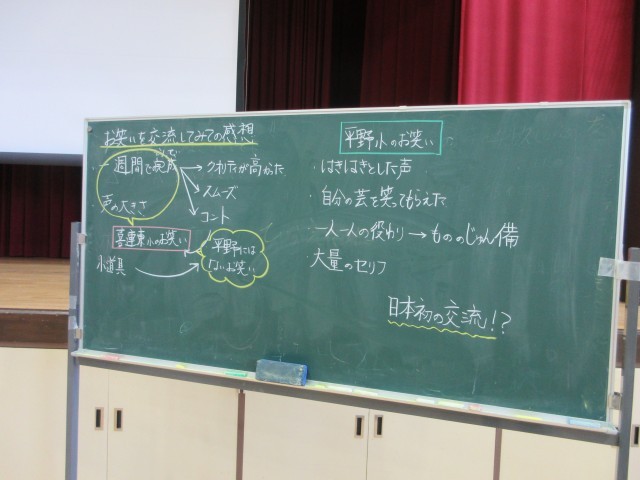 お笑いを交流してみての感想
・一週間で完成
→クオリティが高かった
→スムーズ
→コント
・声の大きさ
喜連東小のお笑い
小道具
平野には
ないお笑い
平野小のお笑い
・はきはきとした声
・自分の芸を笑ってもらえた
・一人一人の役わり→もののじゅん備
・大量のセリフ
日本初の交流!?